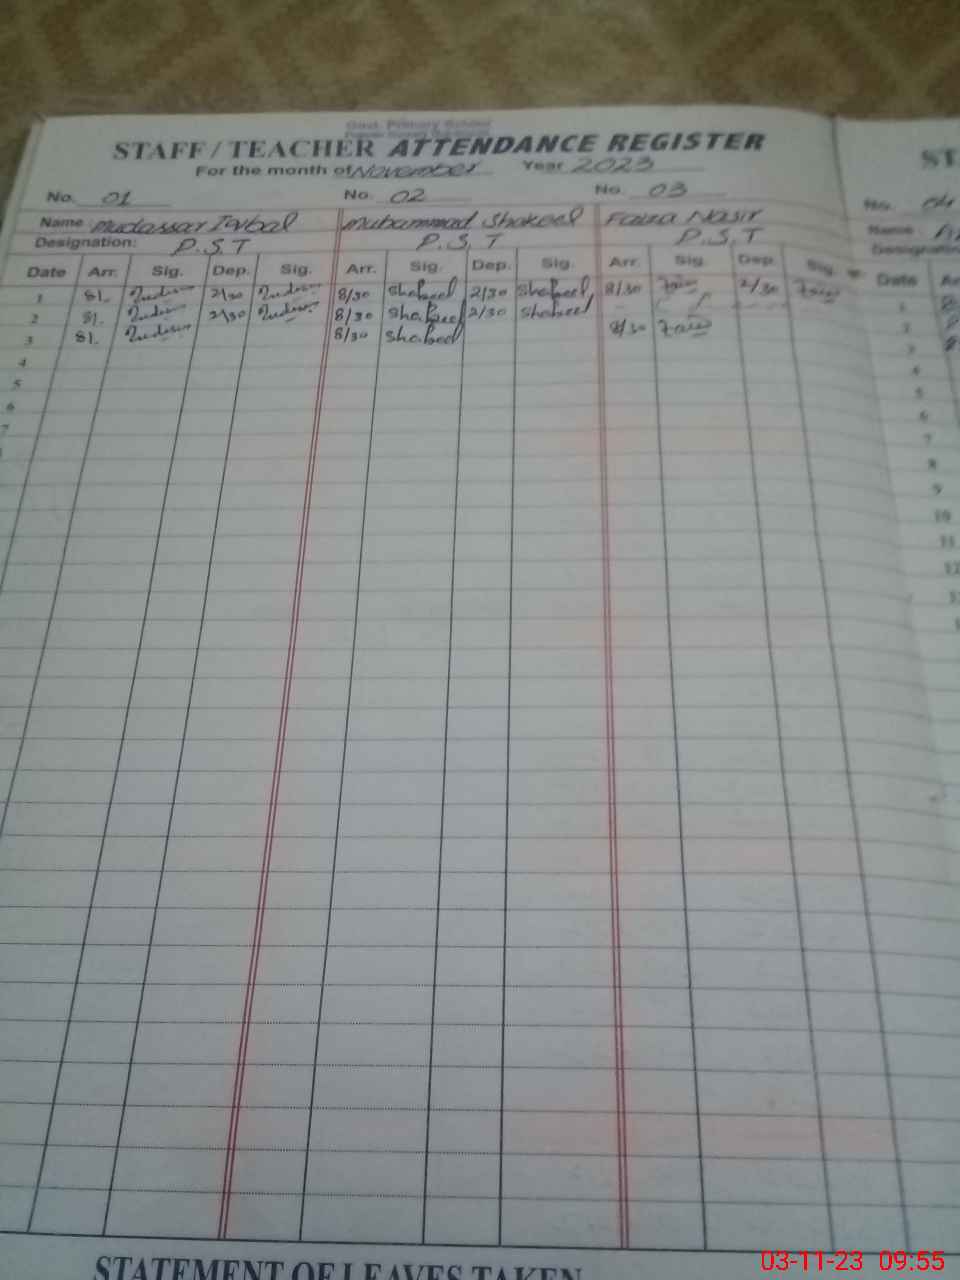 Govt. Primary School
STAFF / TEACHER ATTENDANCE REGISTER
For the month of November Year 2023
No. 01 No. 02 No. 03
Name Mudassar Iqbal Muhammad Shakeel Faiza Nasir
Designation: P.S.T P.S.T P.S.T
Date Arr. Sig. Dep. Sig. Arr. Sig. Dep. Sig. Arr. Sig. Dep. Sig.
1 8/. 2/30 8/30 Shakeel 2/30 Shakeel 8/30 2/30
2 8/. 2/30 8/30 Shakeel 2/30 Shakeel
3 8/. 8/30 Shakeel 8/30
4
5
6
7
ST
No. 04
Name
Designation
Date
1
2
3
4
5
6
7
8
9
10
11
12
STATEMENT OF LEAVES TAKEN
03-11-23 09:55